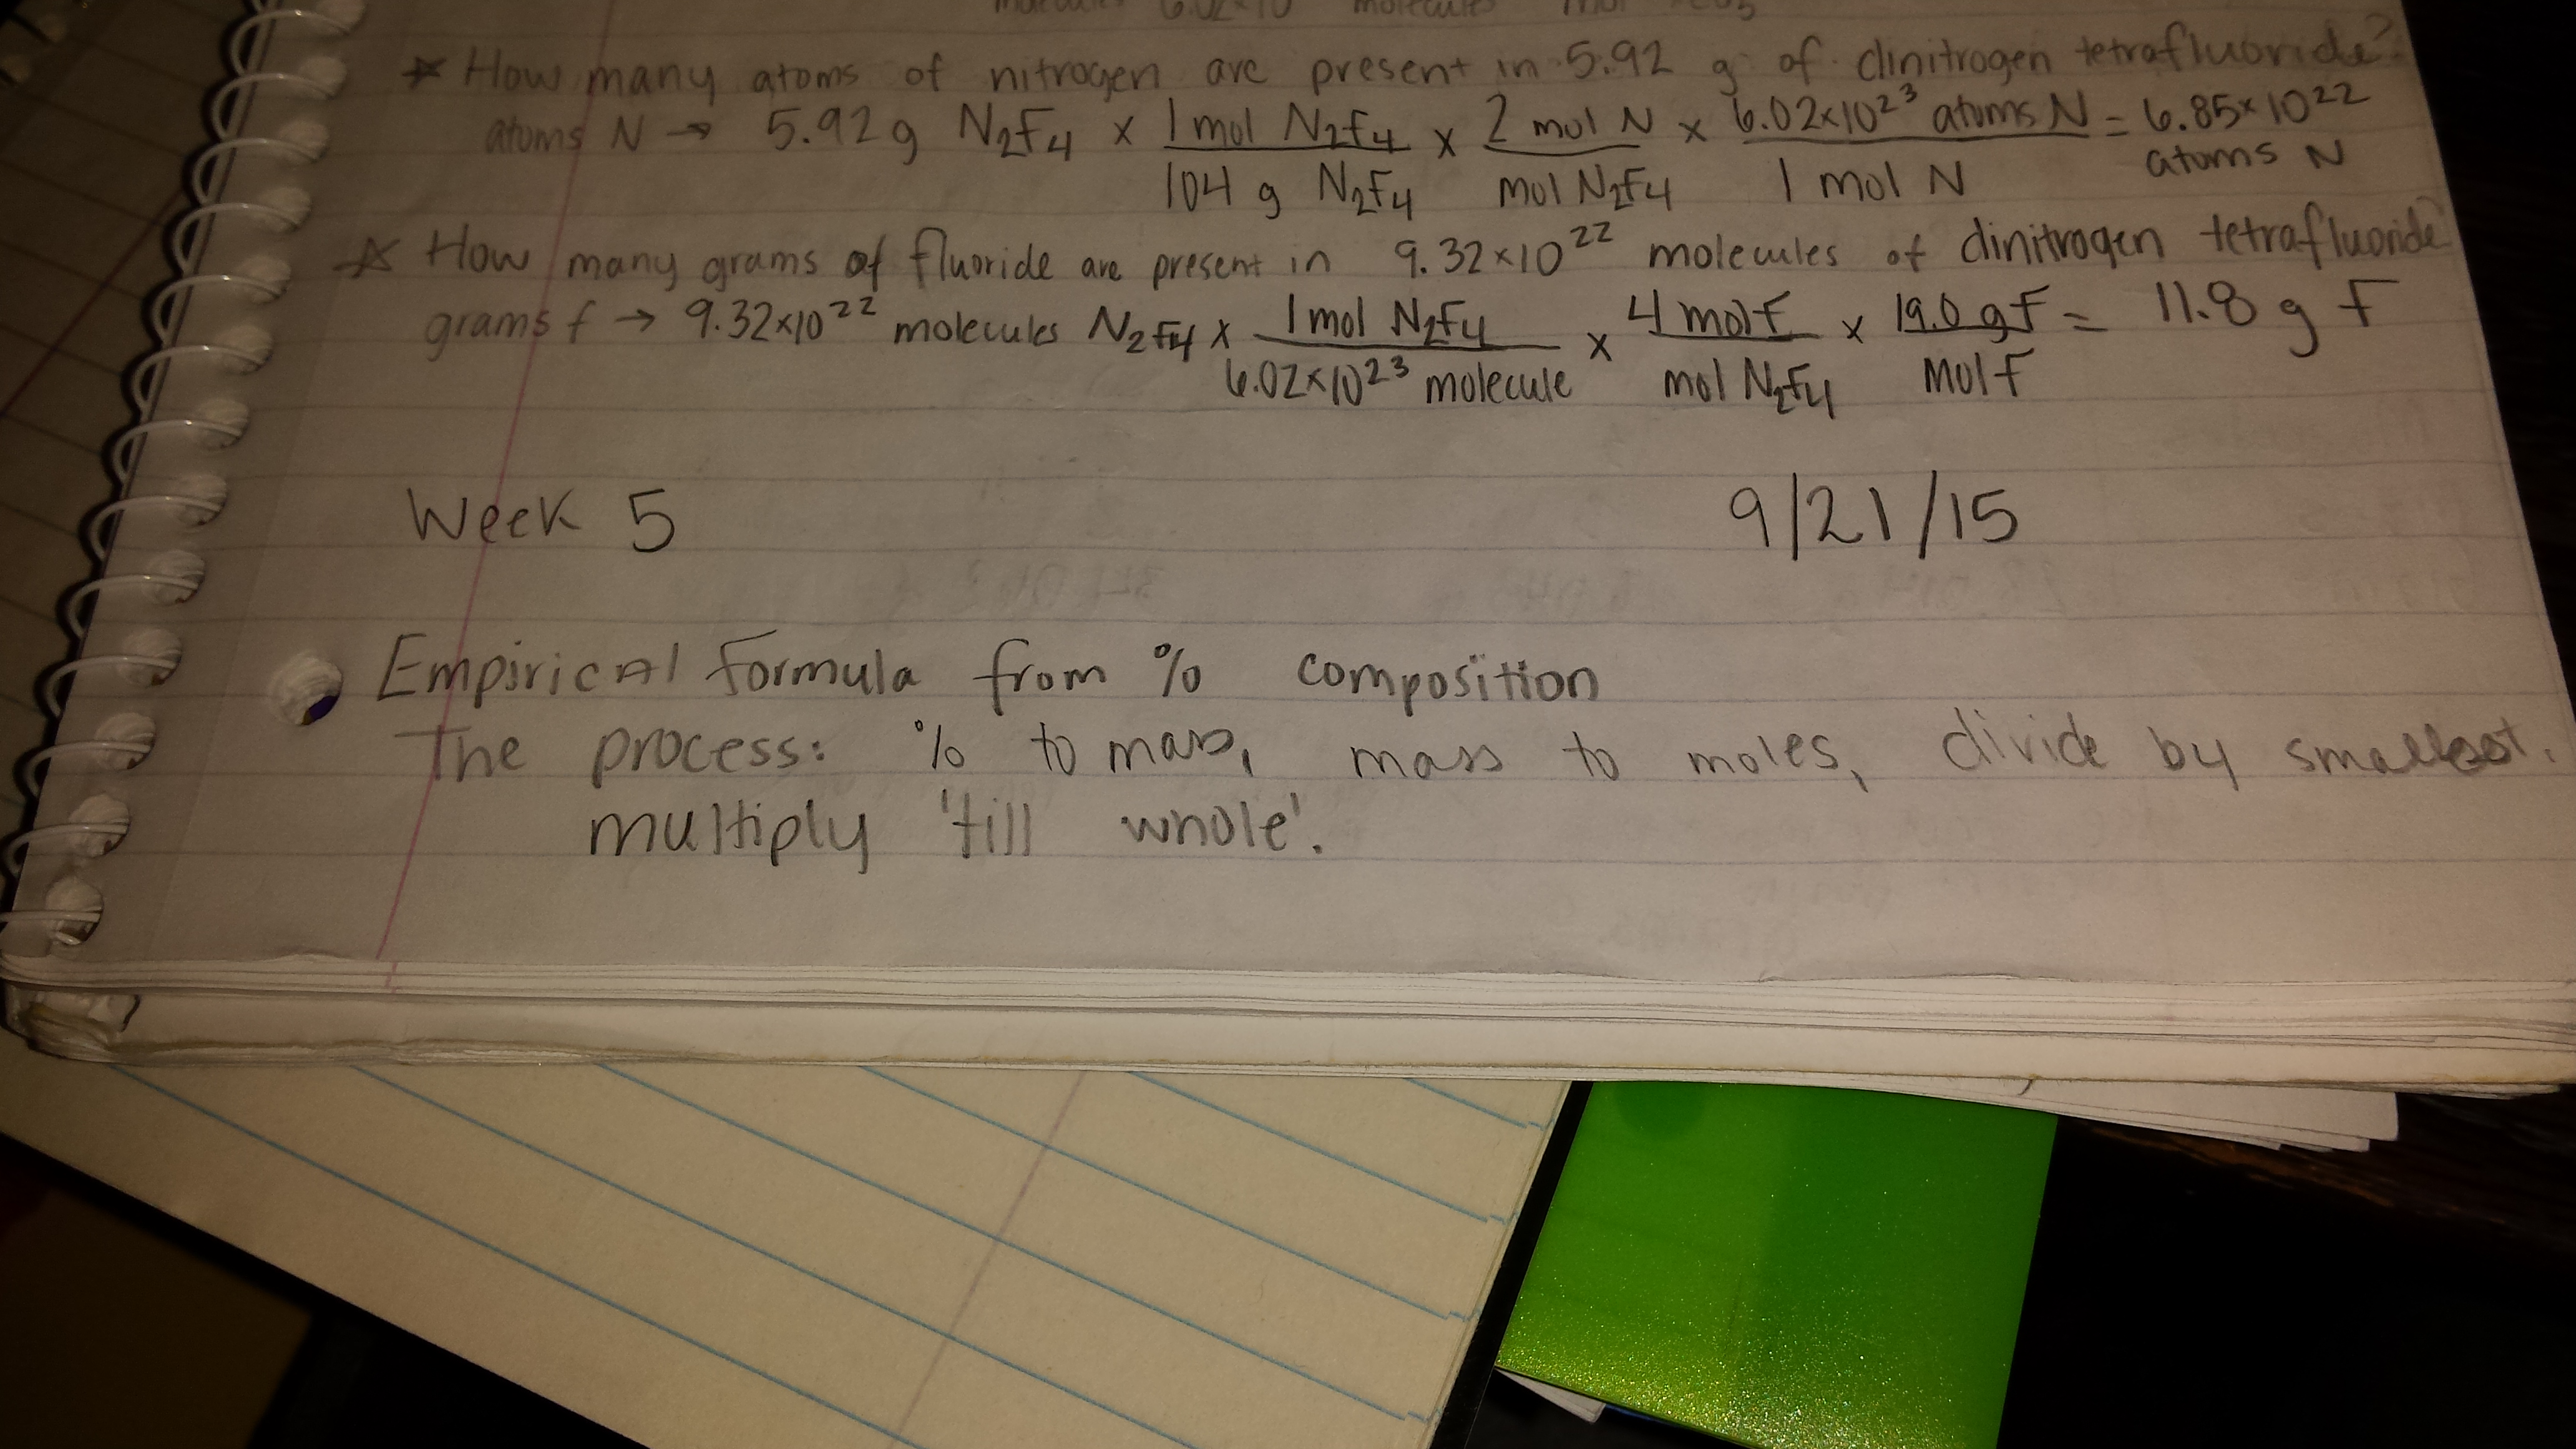 molecules 6.02×10 molecules mol
* How many atoms of nitrogen are present in 5.92 g of dinitrogen tetrafluoride?
atoms N → 5.92 g N₂F₄ × 1 mol N₂F₄ / 104 g N₂F₄ × 2 mol N / mol N₂F₄ × 6.02×10²³ atoms N / 1 mol N = 6.85×10²² atoms N
* How many grams of fluoride are present in 9.32×10²² molecules of dinitrogen tetrafluoride
grams f → 9.32×10²² molecules N₂F₄ × 1 mol N₂F₄ / 6.02×10²³ molecule × 4 mol F / mol N₂F₄ × 19.0 g F / mol F = 11.8 g F
Week 5 9/21/15
Empirical Formula from % composition
The process: % to mass, mass to moles, divide by smallest.
multiply 'till whole'.